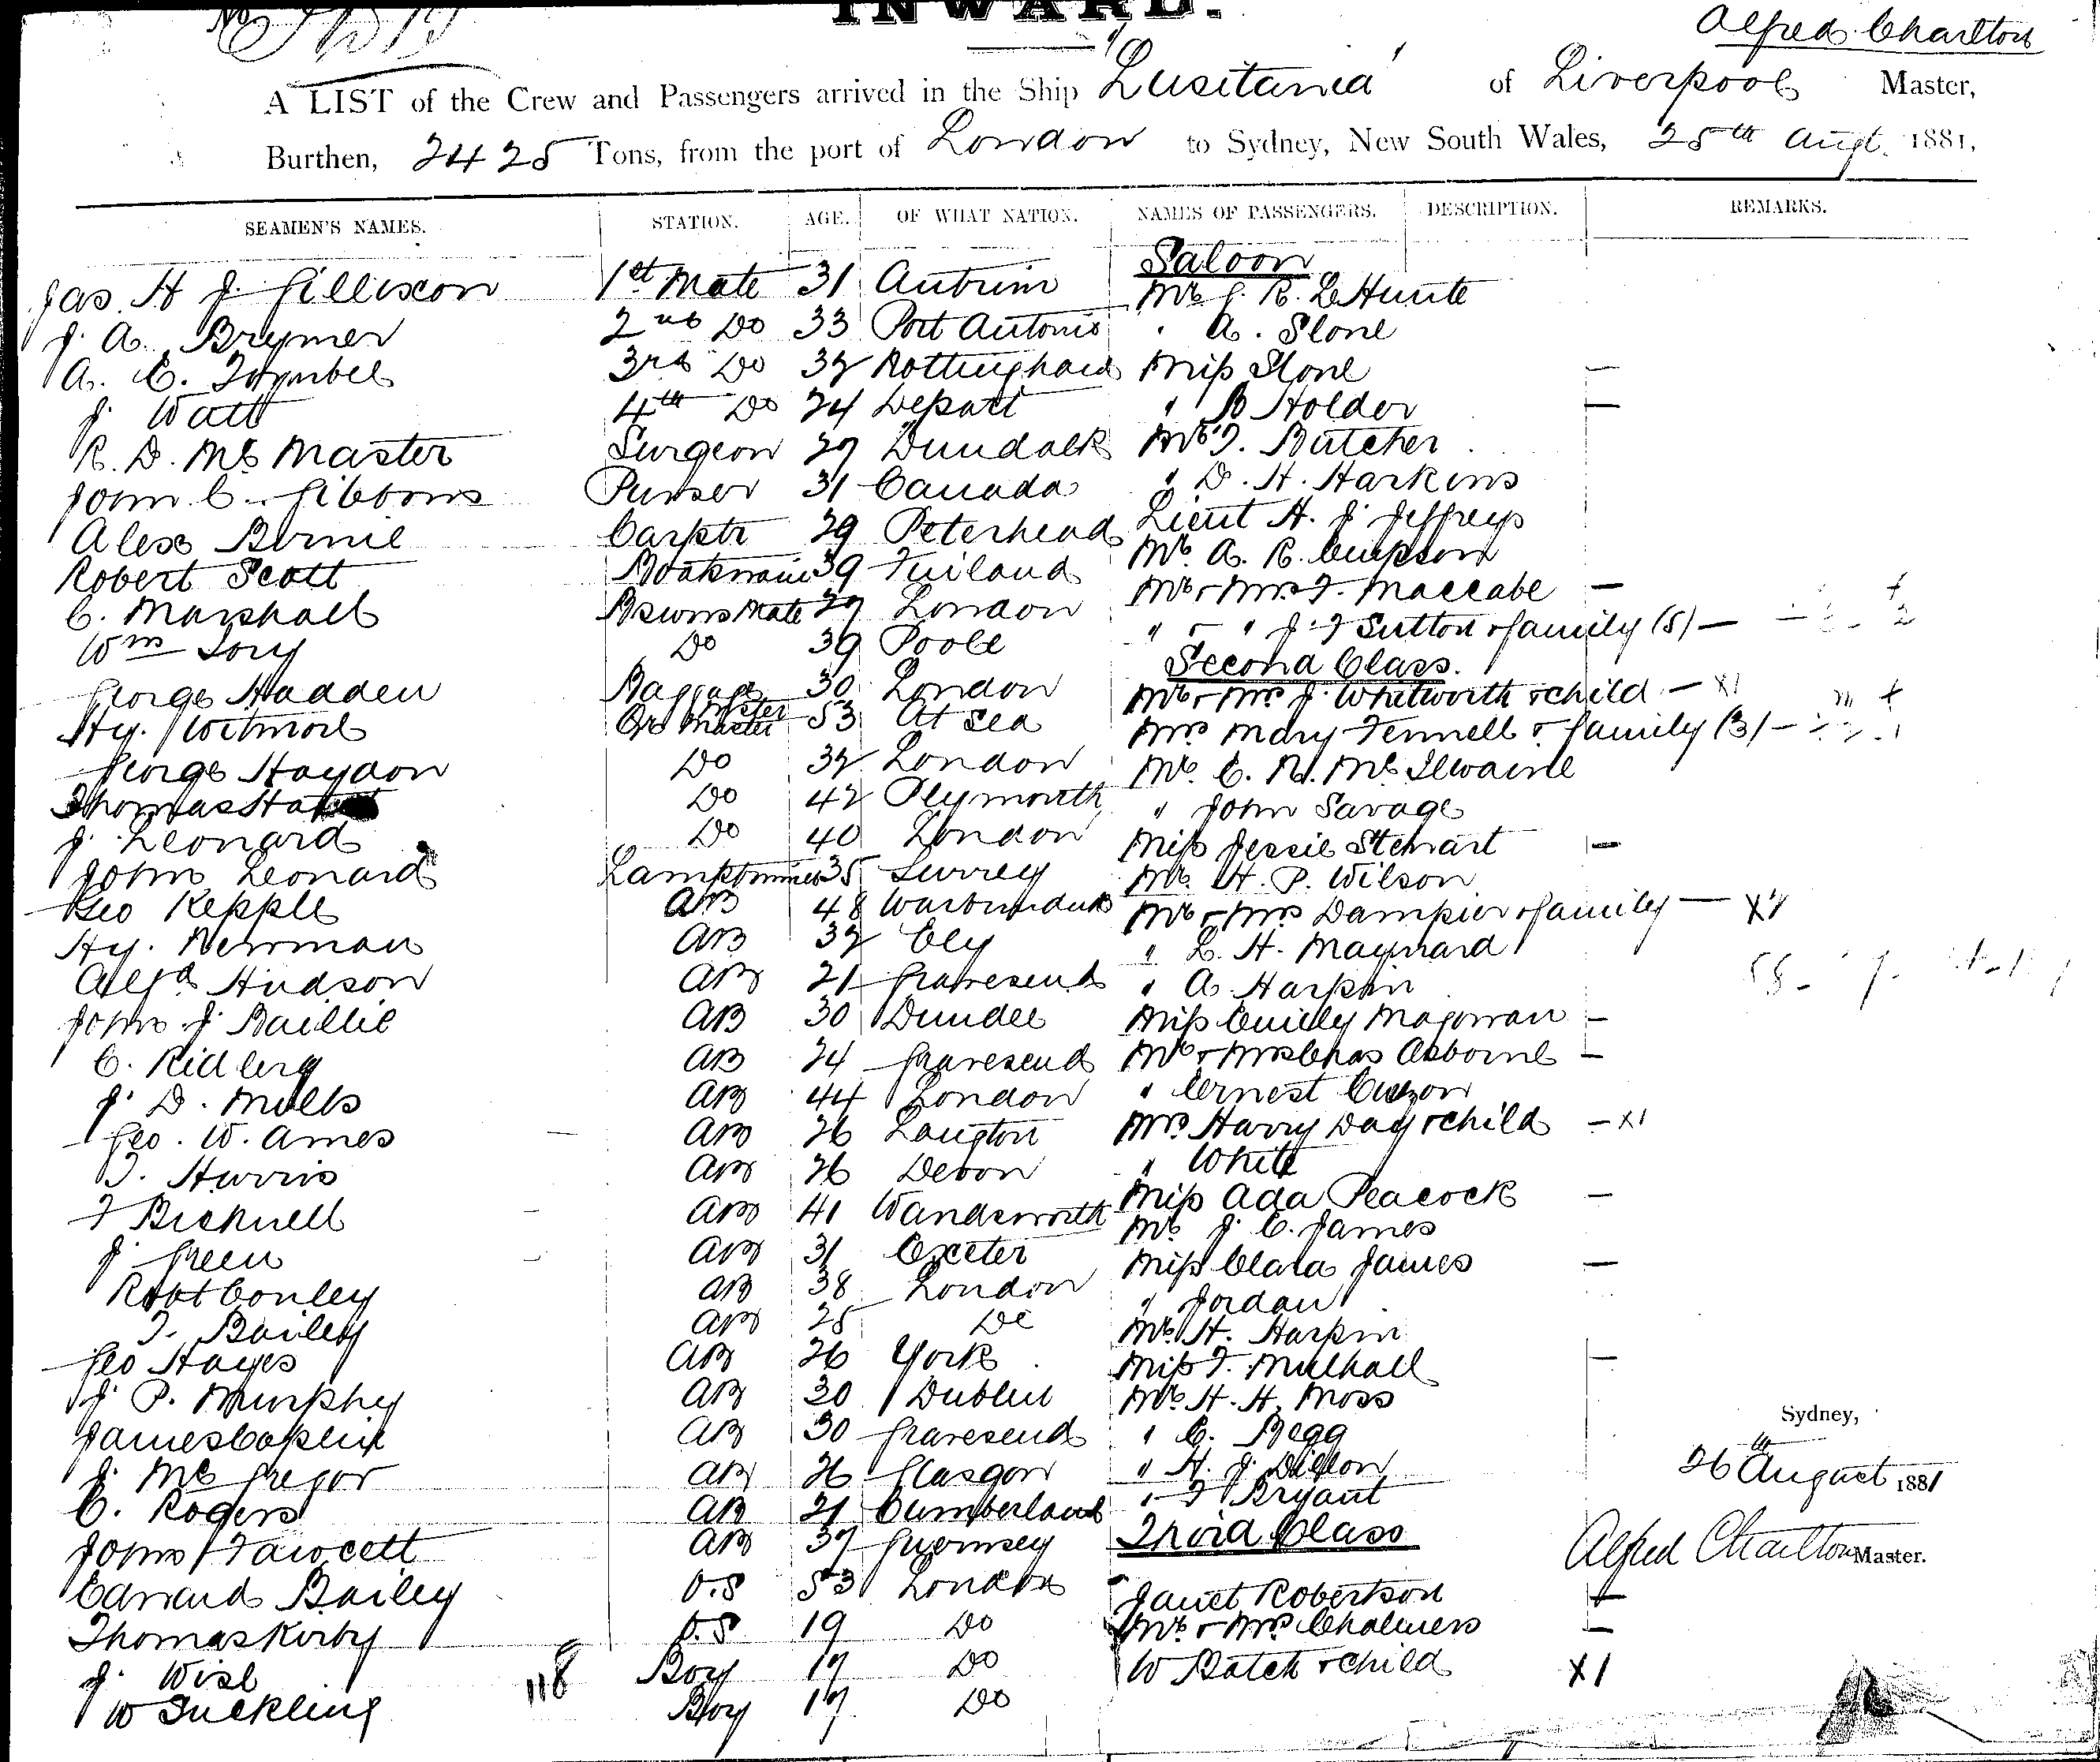 INWARD.
Alfred Charlton
A LIST of the Crew and Passengers arrived in the Ship "Lusitania" of Liverpool Master,
Burthen, 2425 Tons, from the port of London to Sydney, New South Wales, 25th Augt. 1881,
SEAMEN'S NAMES. STATION. AGE. OF WHAT NATION. NAMES OF PASSENGERS. DESCRIPTION. REMARKS.
Saloon
Jas. H J. Gillison 1st Mate 31 Antrim Mr G. R. LeHunte
J. A. Brymer 2nd Do 33 Port Antonio " A. Slone
A. C. 3rd Do 32 Miss Slone —
J. Watt 4th Do 24 " B Holder —
R. D. Mc Master Surgeon 27 Dundalk Mr T. Butcher
John C. Gibbons Purser 31 Canada " D. H. Harkins
Alex Birnie Carptr 29 Peterhead Lieut H. J. Jeffreys
Robert Scott Boatswain 39 Finland Mr. A. R.
C. Marshall Bswns Mate 27 London Mr & Mrs F. Maccabe —
Wm Do 39 Poole " & " J. F Sutton & family (5) — 2
Second Class.
George Hadden Baggage Master 30 London Mr & Mrs J. Whitworth & child — X1
Hy. Qr Master 53 At Sea Mrs Mary Fennell & family (3) —
George Haydon Do 32 London Mr. C. R. Mc Ilwaine
Thomas Do 42 Plymouth " John Savage
J. Leonard Do 40 London Miss Jessie Stewart —
John Leonard Lamptrimmer 35 Surrey Mr. H. P. Wilson
Geo Kepple AB 48 Mr & Mrs Dampier & family — X2
Hy. Newman AB 32 Ely " L. H. Maynard
Alfd Hudson AB 21 Gravesend " A Harpin
John J Baillie AB 30 Dundee Miss Emily Magowan —
C. Ridley AB 24 Gravesend Mr & Mrs Chas Osborne —
J. D. Mills AB 44 London " Ernest Curzon
Geo. W. Ames — AB 26 Langton Mrs. Harry Day & child — X1
T. Harris AB 26 Devon " White
F Bicknell — AB 41 Wandsworth Miss Ada Peacock —
J. Green — AB 31 Exeter Mr J. C. James
Robt Conley AB 38 London Miss Clara James —
T. Bailey AB 25 Do " Jordan
Geo Hayes AB 26 York Mr. H. Harpin
J. P. Murphy AB 30 Dublin Miss F. Mulhall —
James AB 30 Gravesend Mr. H. H. Moss
J. Mc Gregor AB 26 Glasgow " C. Begg
C. Rogers AB 21 Cumberland " H. J. Dillon
John Fawcett AB 37 Guernsey " F Bryant
Third Class
Edward Bailey O.S 53 London Janet Robertson —
Thomas Kirby O.S 19 Do Mr. & Mrs. Chalmers —
J. Wise 118 Boy 17 Do W Batch & child X1
W Suckling Boy 17 Do
Sydney,
26th August 1881
Alfred Charlton Master.